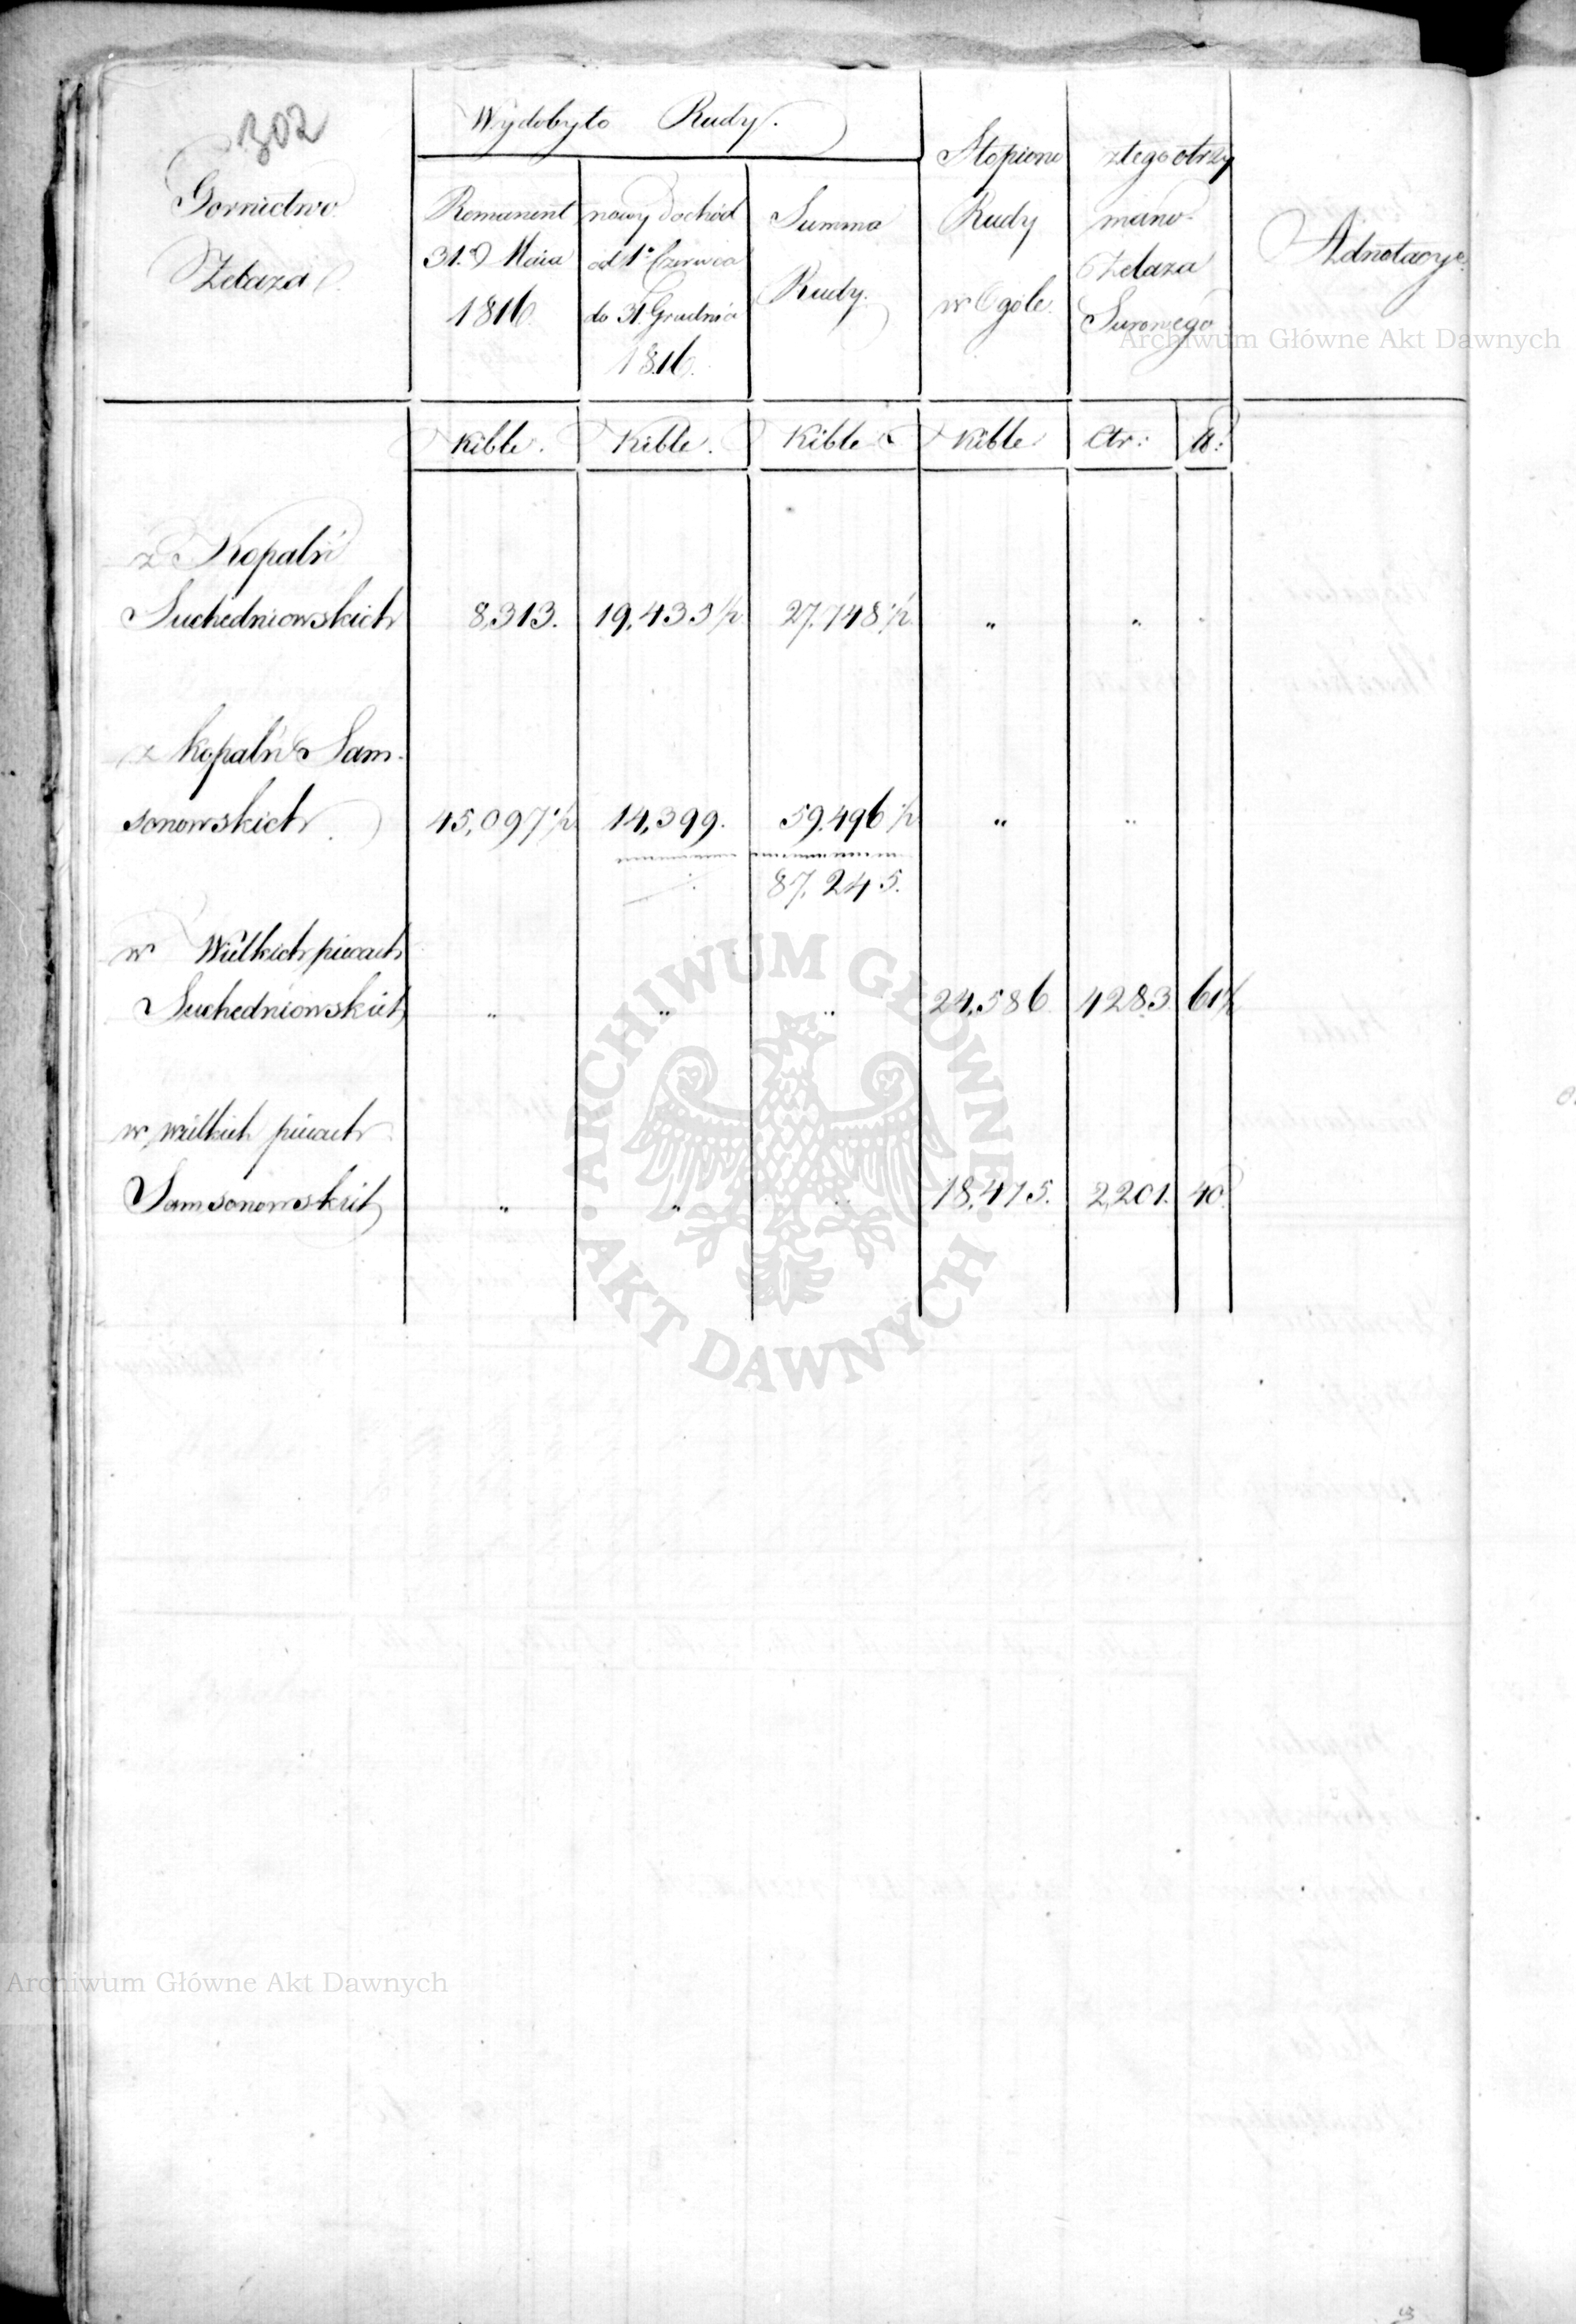 302
Gornictwo
Żelaza
Wydobyto Rudy.
Remanent
31.º Maia
1816.
nowy dochód
od 1º Czerwca
do 31. Grudnia
1816.
Summa
Rudy.
Stopiono
Rudy
w Ogóle.
z tego otrzy
mano
Żelaza
Surowego
Adnotacye.
Kible. Kible. Kible Kible Ctr: ℔:
z Kopalń
Suchedniowskich 8,313. 19,435 ½ 27,748 ½ " " "
z Kopalń Sam-
sonowskich 45,097 ½ 14,399. 59,496 ½ " "
87,245.
w Wielkich piecach
Suchedniowskich " " " 24,586 4283
w wielkich piecach
Samsonowskich " " " 18,475. 2,201. 40.
Archiwum Główne Akt Dawnych
ARCHIWUM GŁÓWNE
AKT DAWNYCH
Archiwum Główne Akt Dawnych